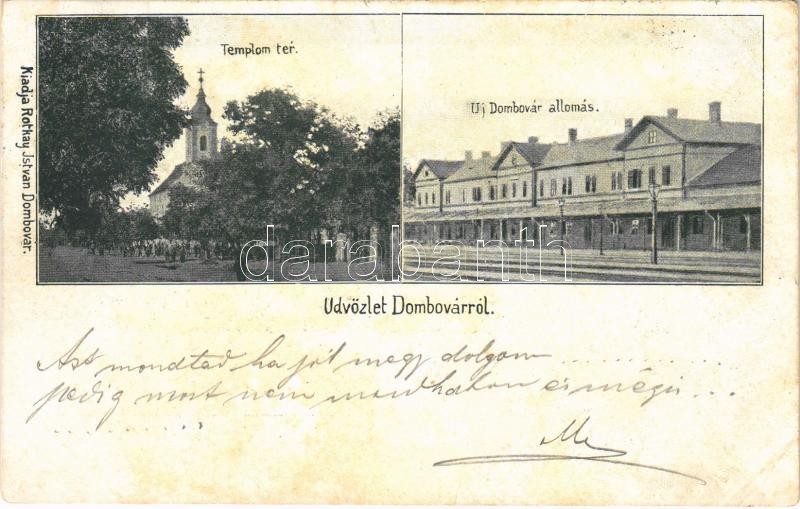 Templom tér.
Uj Dombovár allomás.
Kiadja Rotkay Jstvan Dombovár.
darabanth
Udvözlet Dombovárról.
Azt mondtad ha jól megy dolgom . . . . . . . . .
pedig most nem mondhatom és mégis . . .
. . . . . . . . .